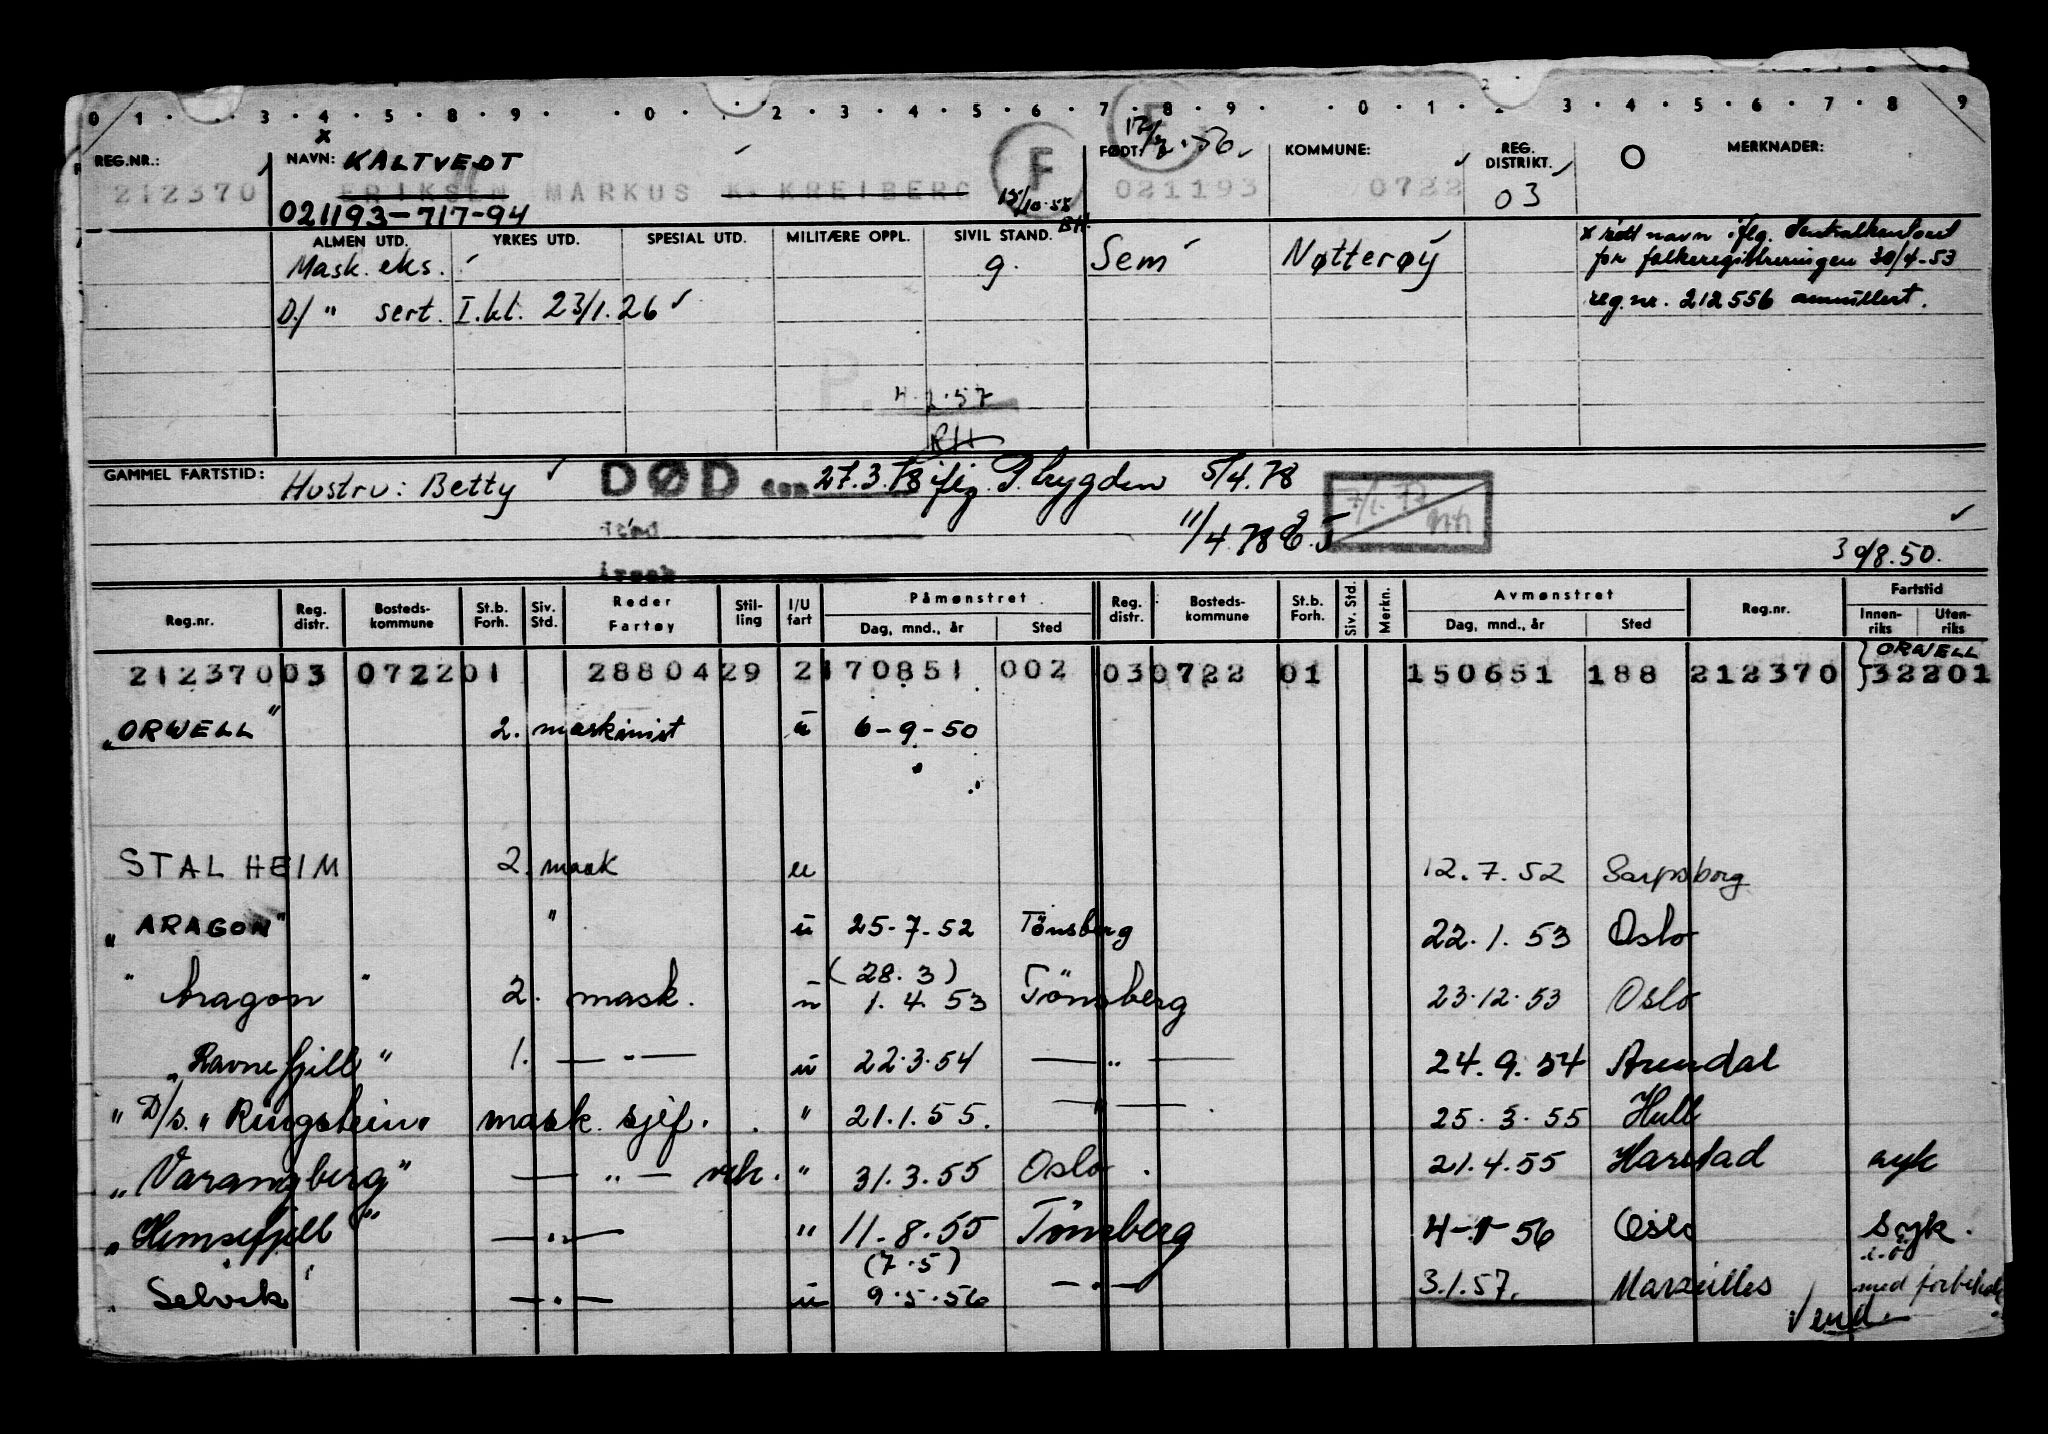 0 1 · · 3 · 4 · 5 · 8 · 9 · · 0 · · 2 · 3 · 4 · 5 · 6 · 7 · 8 · 9 · · 0 · 1 · 2 · 3 · 4 · 5 · 6 · 7 · 8 9
REG.NR.: NAVN: x KALTVEDT F FØDT: KOMMUNE: REG. DISTRIKT. O MERKNADER:
212370 ERIKSEN MARKUS K. KREIBERG 021193 0722 03
021193-717-94 15/10-55 BH.
ALMEN UTD. YRKES UTD. SPESIAL UTD. MILITÆRE OPPL. SIVIL STAND.
Mask. eks. g. Sem Nøtterøy
x rett navn iflg. Sentralkontoret
for folkeregistreringen 30/4-53
D/ " sert. I. kl. 23/1.26 reg.nr. 212556 annullert.
P. 4.2.57
RH
GAMMEL FARTSTID: Hustru: Betty DØD den 27.3.78 iflg. P. trygden 5/4.78
7/1.77
11/4.78
30/8.50.
Reg.nr. Reg. distr. Bosteds-kommune St.b. Forh. Siv. Std. Reder Fartøy Stil-ling I/U fart Påmønstret Dag, mnd., år Sted Reg. distr. Bosteds-kommune St.b. Forh. Siv. Std. Merkn. Avmønstret Dag, mnd., år Sted Reg.nr. Fartstid Innen-riks Uten-riks
ORWELL
212370 03 0722 01 28804 29 2 170851 002 03 0722 01 150651 188 212370 32201
"ORWELL" 2. maskinist u 6-9-50
STALHEIM 2. mask u 12.7.52 Sarpsborg
"ARAGON" " u 25.7.52 Tönsberg 22.1.53 Oslo
(28.3)
" Aragon " 2. mask. u 1.4.53 Tönsberg 23.12.53 Oslo
"Ravnefjell" 1. — " — u 22.3.54 — " — 24.9.54 Arendal
" D/s. "Ringstein" mask. sjef. " 21.1.55. — " — 25.3.55 Hull
"Varangberg" — " — vik. " 31.3.55 Oslo 21.4.55 Harstad syk
"Hemsefjell" — " — " 11.8.55 Tönsberg 4-1-56 Oslo Syk.
(7.5)
Selvik — " — u 9.5.56 — " — 3.1.57. Marseilles med
Vend